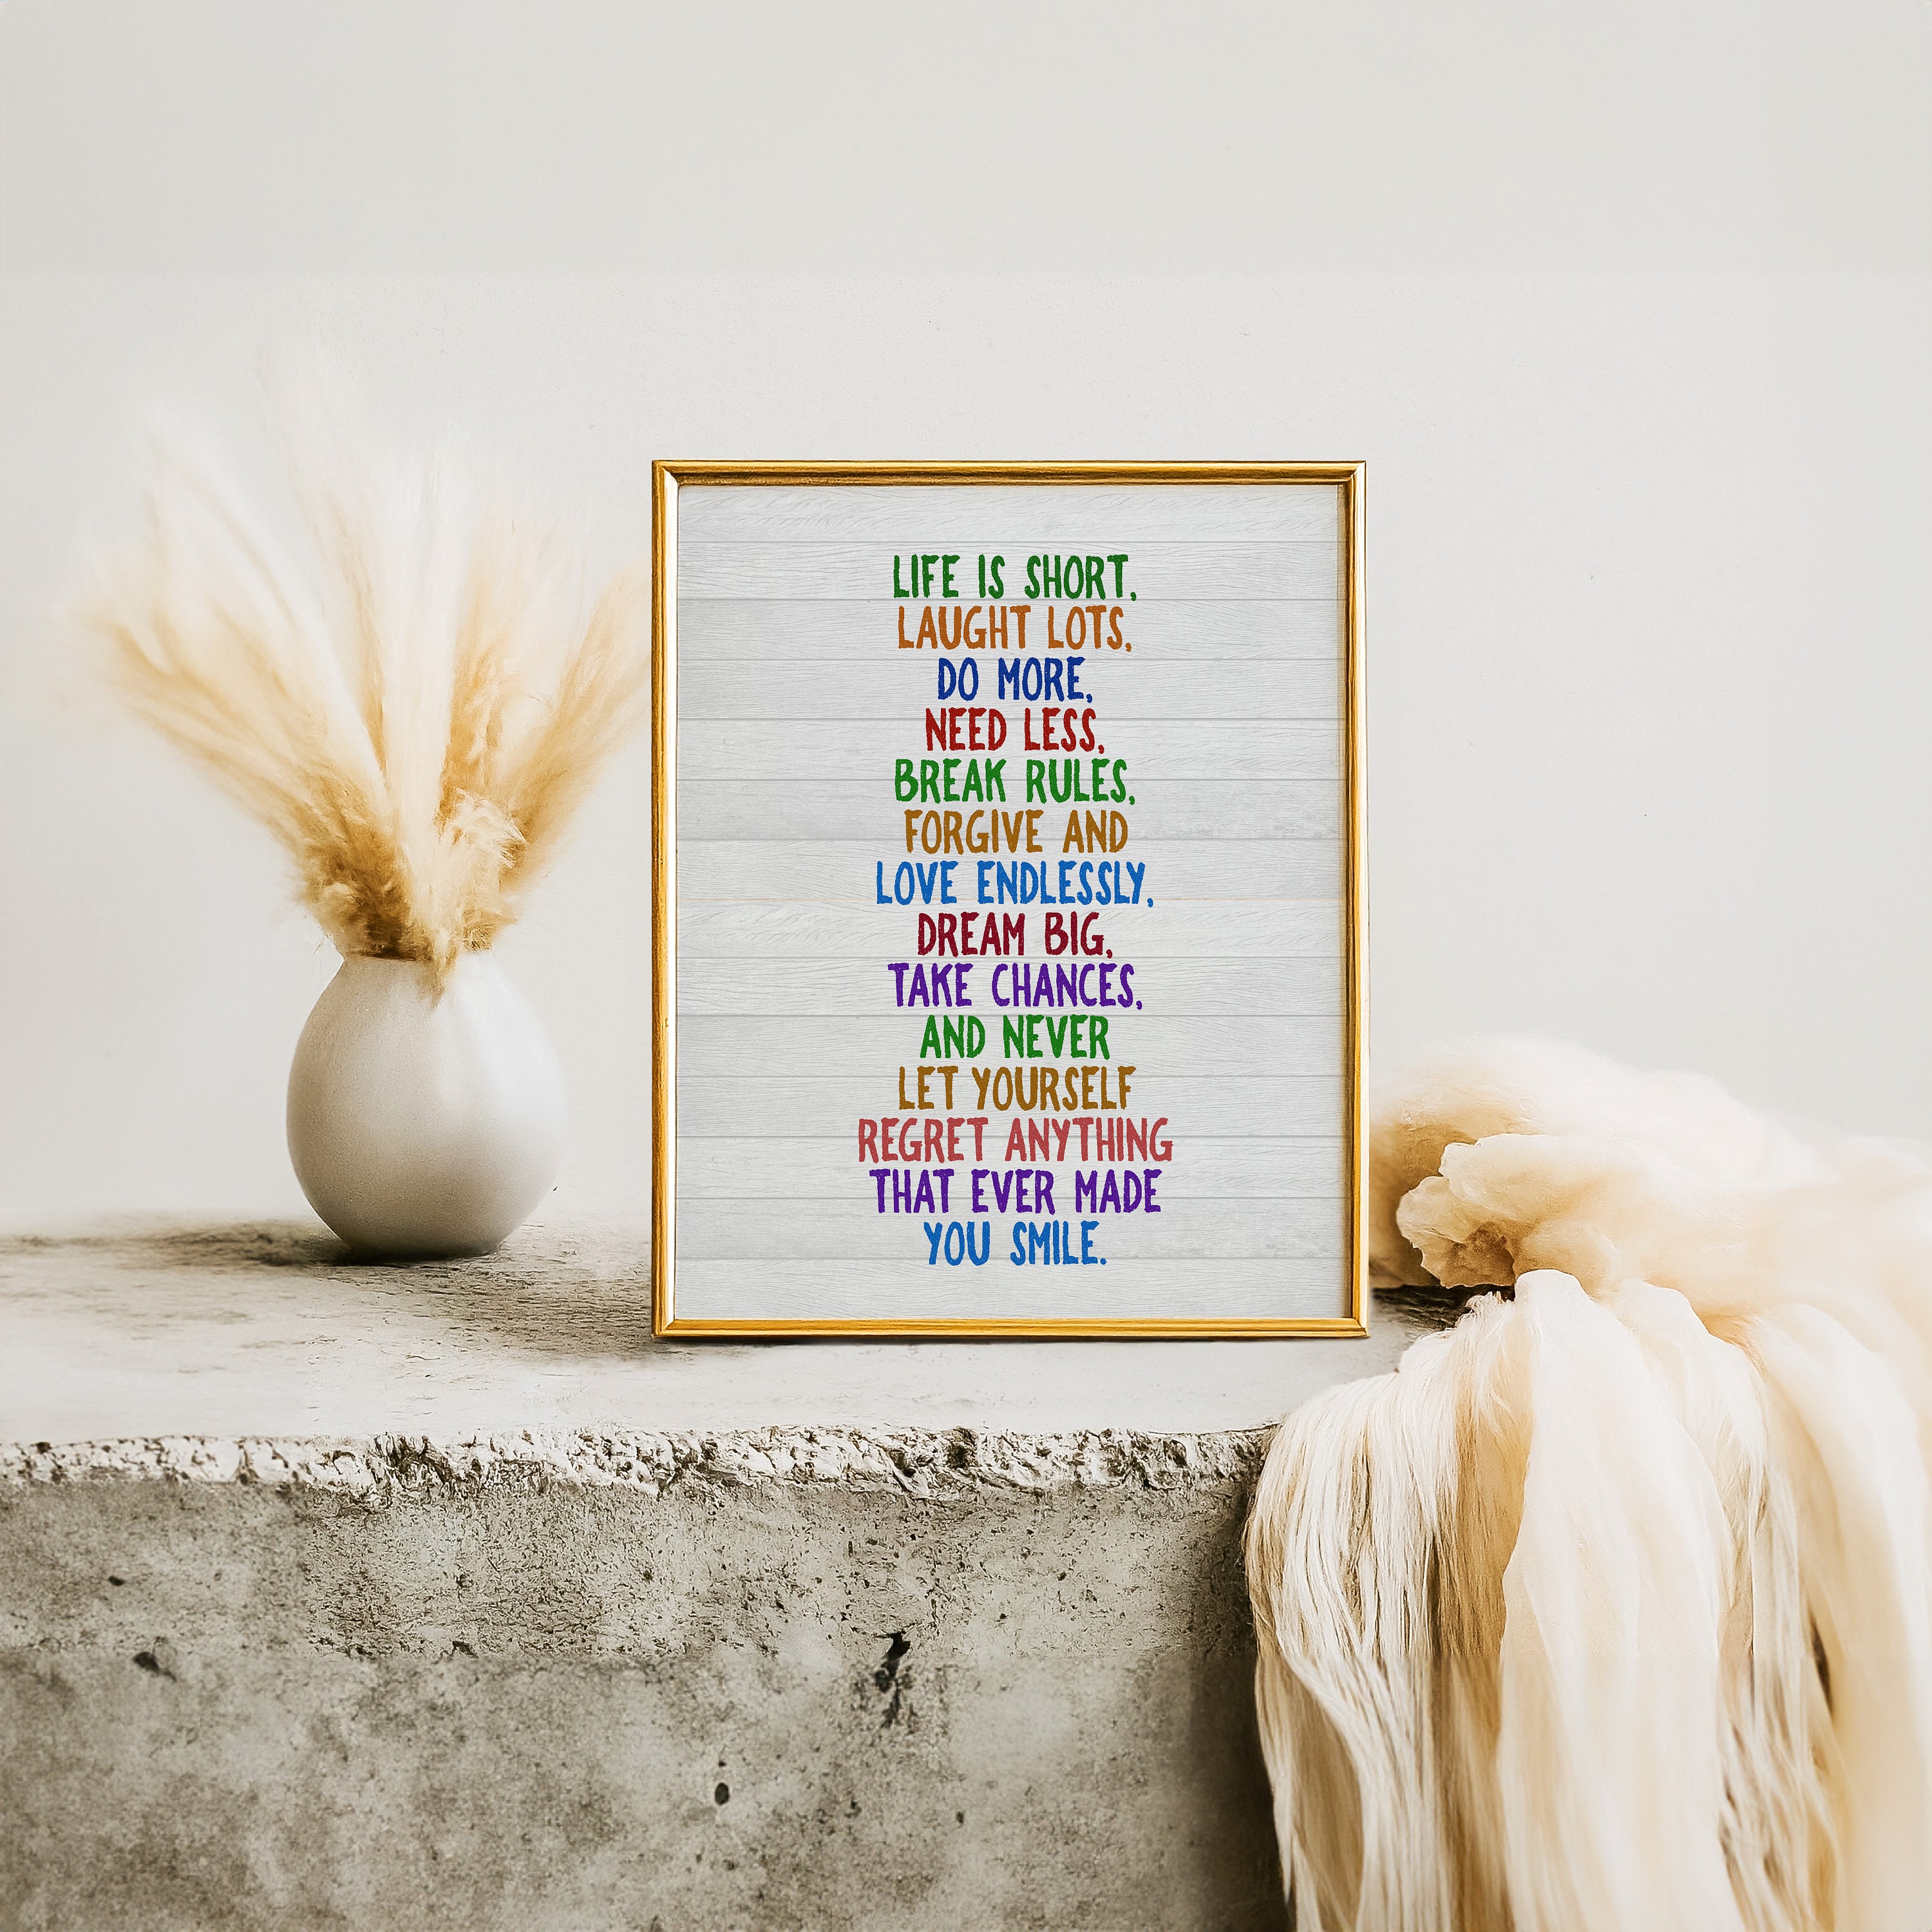 LIFE IS SHORT,
LAUGHT LOTS,
DO MORE,
NEED LESS,
BREAK RULES,
FORGIVE AND
LOVE ENDLESSLY,
DREAM BIG,
TAKE CHANCES,
AND NEVER
LET YOURSELF
REGRET ANYTHING
THAT EVER MADE
YOU SMILE.